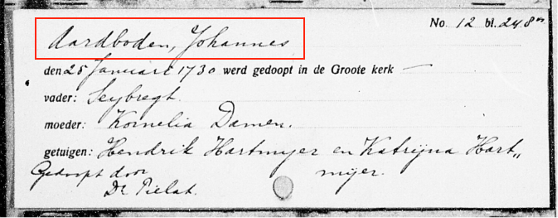 No. 12 bl. 248vo
Aardboden, Johannes
den 25 Januari 1730 werd gedoopt in de Groote kerk —
vader: Seybregt.
moeder: Kornelia Damen.
getuigen: Hendrik Hartmyer en Katrijna Hart„
Gedoopt door mijer.
Ds. Pielat.